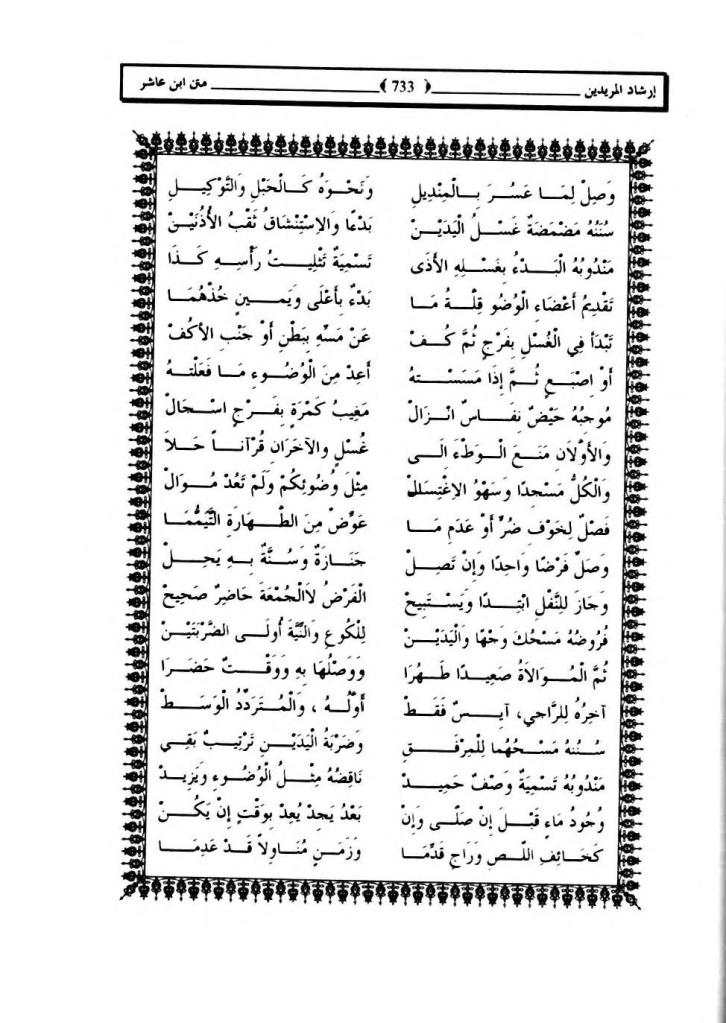 إرشاد المريدين ﴿ 733 ﴾ متن ابن عاشر
وَصِلْ لِمَا عَسُرَ بِالْمِنْدِيلِ وَنَحْوَهُ كَالْحَبْلِ وَالتَّوْكِيلِ
سُنَنُهُ مَضْمَضَةٌ غَسْلُ الْيَدَيْنْ بَدْءًا وَالاِسْتِنْشَاقُ ثَقْبُ الأُذُنَيْنْ
مَنْدُوبُهُ الْبَدْءُ بِغَسْلِهِ الأَذَى تَسْمِيَةٌ تَثْلِيثُ رَأْسِهِ كَذَا
تَقْدِيمُ أَعْضَاءِ الْوُضُو قِلَّةُ مَا بَدْءٌ بِأَعْلَى وَيَمِينٍ خُذْهُمَا
تَبْدَأُ فِي الْغُسْلِ بِفَرْجٍ ثُمَّ كُفْ عَنْ مَسِّهِ بِبَطْنِ أَوْ جَنْبِ الأَكُفْ
أَوْ اِصْبَعٍ ثُمَّ إِذَا مَسَسْتَهُ أَعِدْ مِنَ الْوُضُوءِ مَا فَعَلْتَهُ
مُوجِبُهُ حَيْضٌ نِفَاسٌ انْزَالْ مَغِيبُ كَمْرَةٍ بِفَرْجٍ اسْجَالْ
وَالأَوَّلاَنِ مَنَعَ الْوَطْءَ الَى غُسْلٍ والآخَرَانِ قُرْآناً حَلاَ
وَالْكُلُّ مَسْجِدًا وَسَهْوُ الاِغْتِسَالْ مِثْلَ وُضُوئِكُمْ وَلَمْ تَعُدْ مُوَالْ
فَصْلٌ لِخَوْفِ ضُرٍّ أَوْ عَدَمِ مَا عَوِّضْ مِنَ الطَّهَارَةِ التَّيَمُّمَا
وَصَلِّ فَرْضًا وَاحِدًا وَإِنْ تَصِلْ جَنَازَةٌ وَسُنَّةٌ بِهِ يَحِلْ
وَجَازَ لِلنَّفْلِ ابْتِدًا وَيَسْتَبِيحْ الْفَرْضُ لاَالْجُمْعَةَ حَاضِرٌ صَحِيحْ
فُرُوضُهُ مَسْحُكَ وَجْهًا وَالْيَدَيْنْ لِلْكُوعِ وَالنِّيَّةُ أُولَى الضَّرْبَتَيْنْ
ثُمَّ الْمُوَالاَةُ صَعِيدًا طَهُرَا وَوَصْلُهَا بِهِ وَوَقْتٌ حَضَرَا
آخِرُهُ لِلرَّاجِي، آيِسٌ فَقَطْ أَوَّلُهُ ، وَالْمُتَرَدِّدُ الْوَسَطْ
سُنَنُهُ مَسْحُهُمَا لِلْمِرْفَقِ وَضَرْبَةُ الْيَدَيْنِ تَرْتِيبٌ بَقِي
مَنْدُوبُهُ تَسْمِيَةٌ وَصْفٌ حَمِيدْ نَاقِضُهُ مِثْلُ الْوُضُوءِ وَيَزِيدْ
وُجُودُ مَاءٍ قَبْلَ إِنْ صَلَّى وَإِنْ بَعْدُ يَجِدْ يُعِدْ بِوَقْتٍ إِنْ يَكُنْ
كَخَائِفِ اللِّصِ وَرَاجٍ قَدَّمَا وَزَمَنٍ مُنَاوِلاً قَدْ عَدِمَا